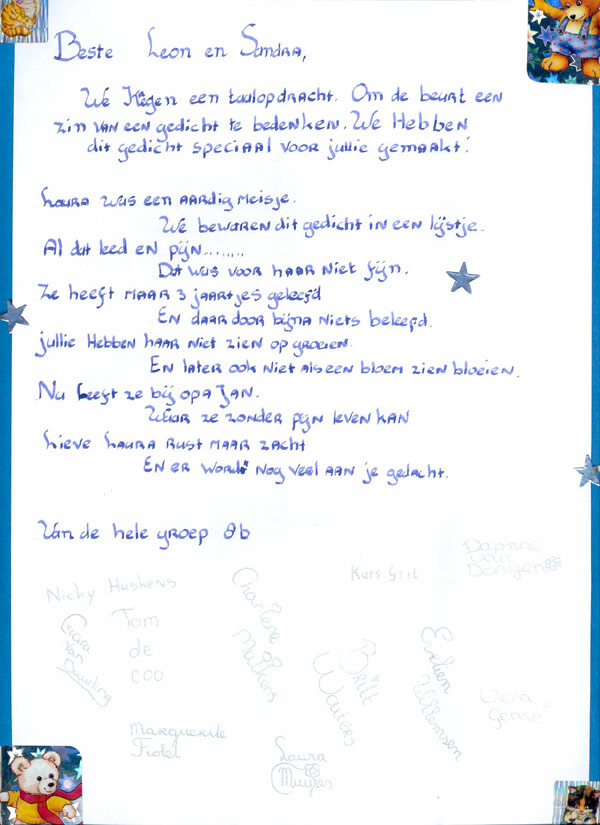 Beste Leon en Sandra,
We kregen een taalopdracht. Om de beurt een
zin van een gedicht te bedenken. We Hebben
dit gedicht speciaal voor jullie gemaakt!
Laura was een aardig meisje.
We bewaren dit gedicht in een lijstje.
Al dat leed en pijn........
Dat was voor haar niet fijn.
Ze heeft maar 3 jaartjes geleefd
En daardoor bijna niets beleefd.
jullie Hebben haar niet zien opgroeien.
En later ook niet als een bloem zien bloeien.
Nu leeft ze bij opa Jan.
Waar ze zonder pijn leven kan
Lieve Laura rust maar zacht
En er wordt nog veel aan je gedacht.
Van de hele groep 8b
Daphne
van
Dongen
Kars Grit
Nicky Huskens
Charlene
Mulkens
Tom
de
coo
Giara
van
Britt
Wouters
Evelien
Willemsen
Vera
Gense
Marguerite
Fiolet
Laura